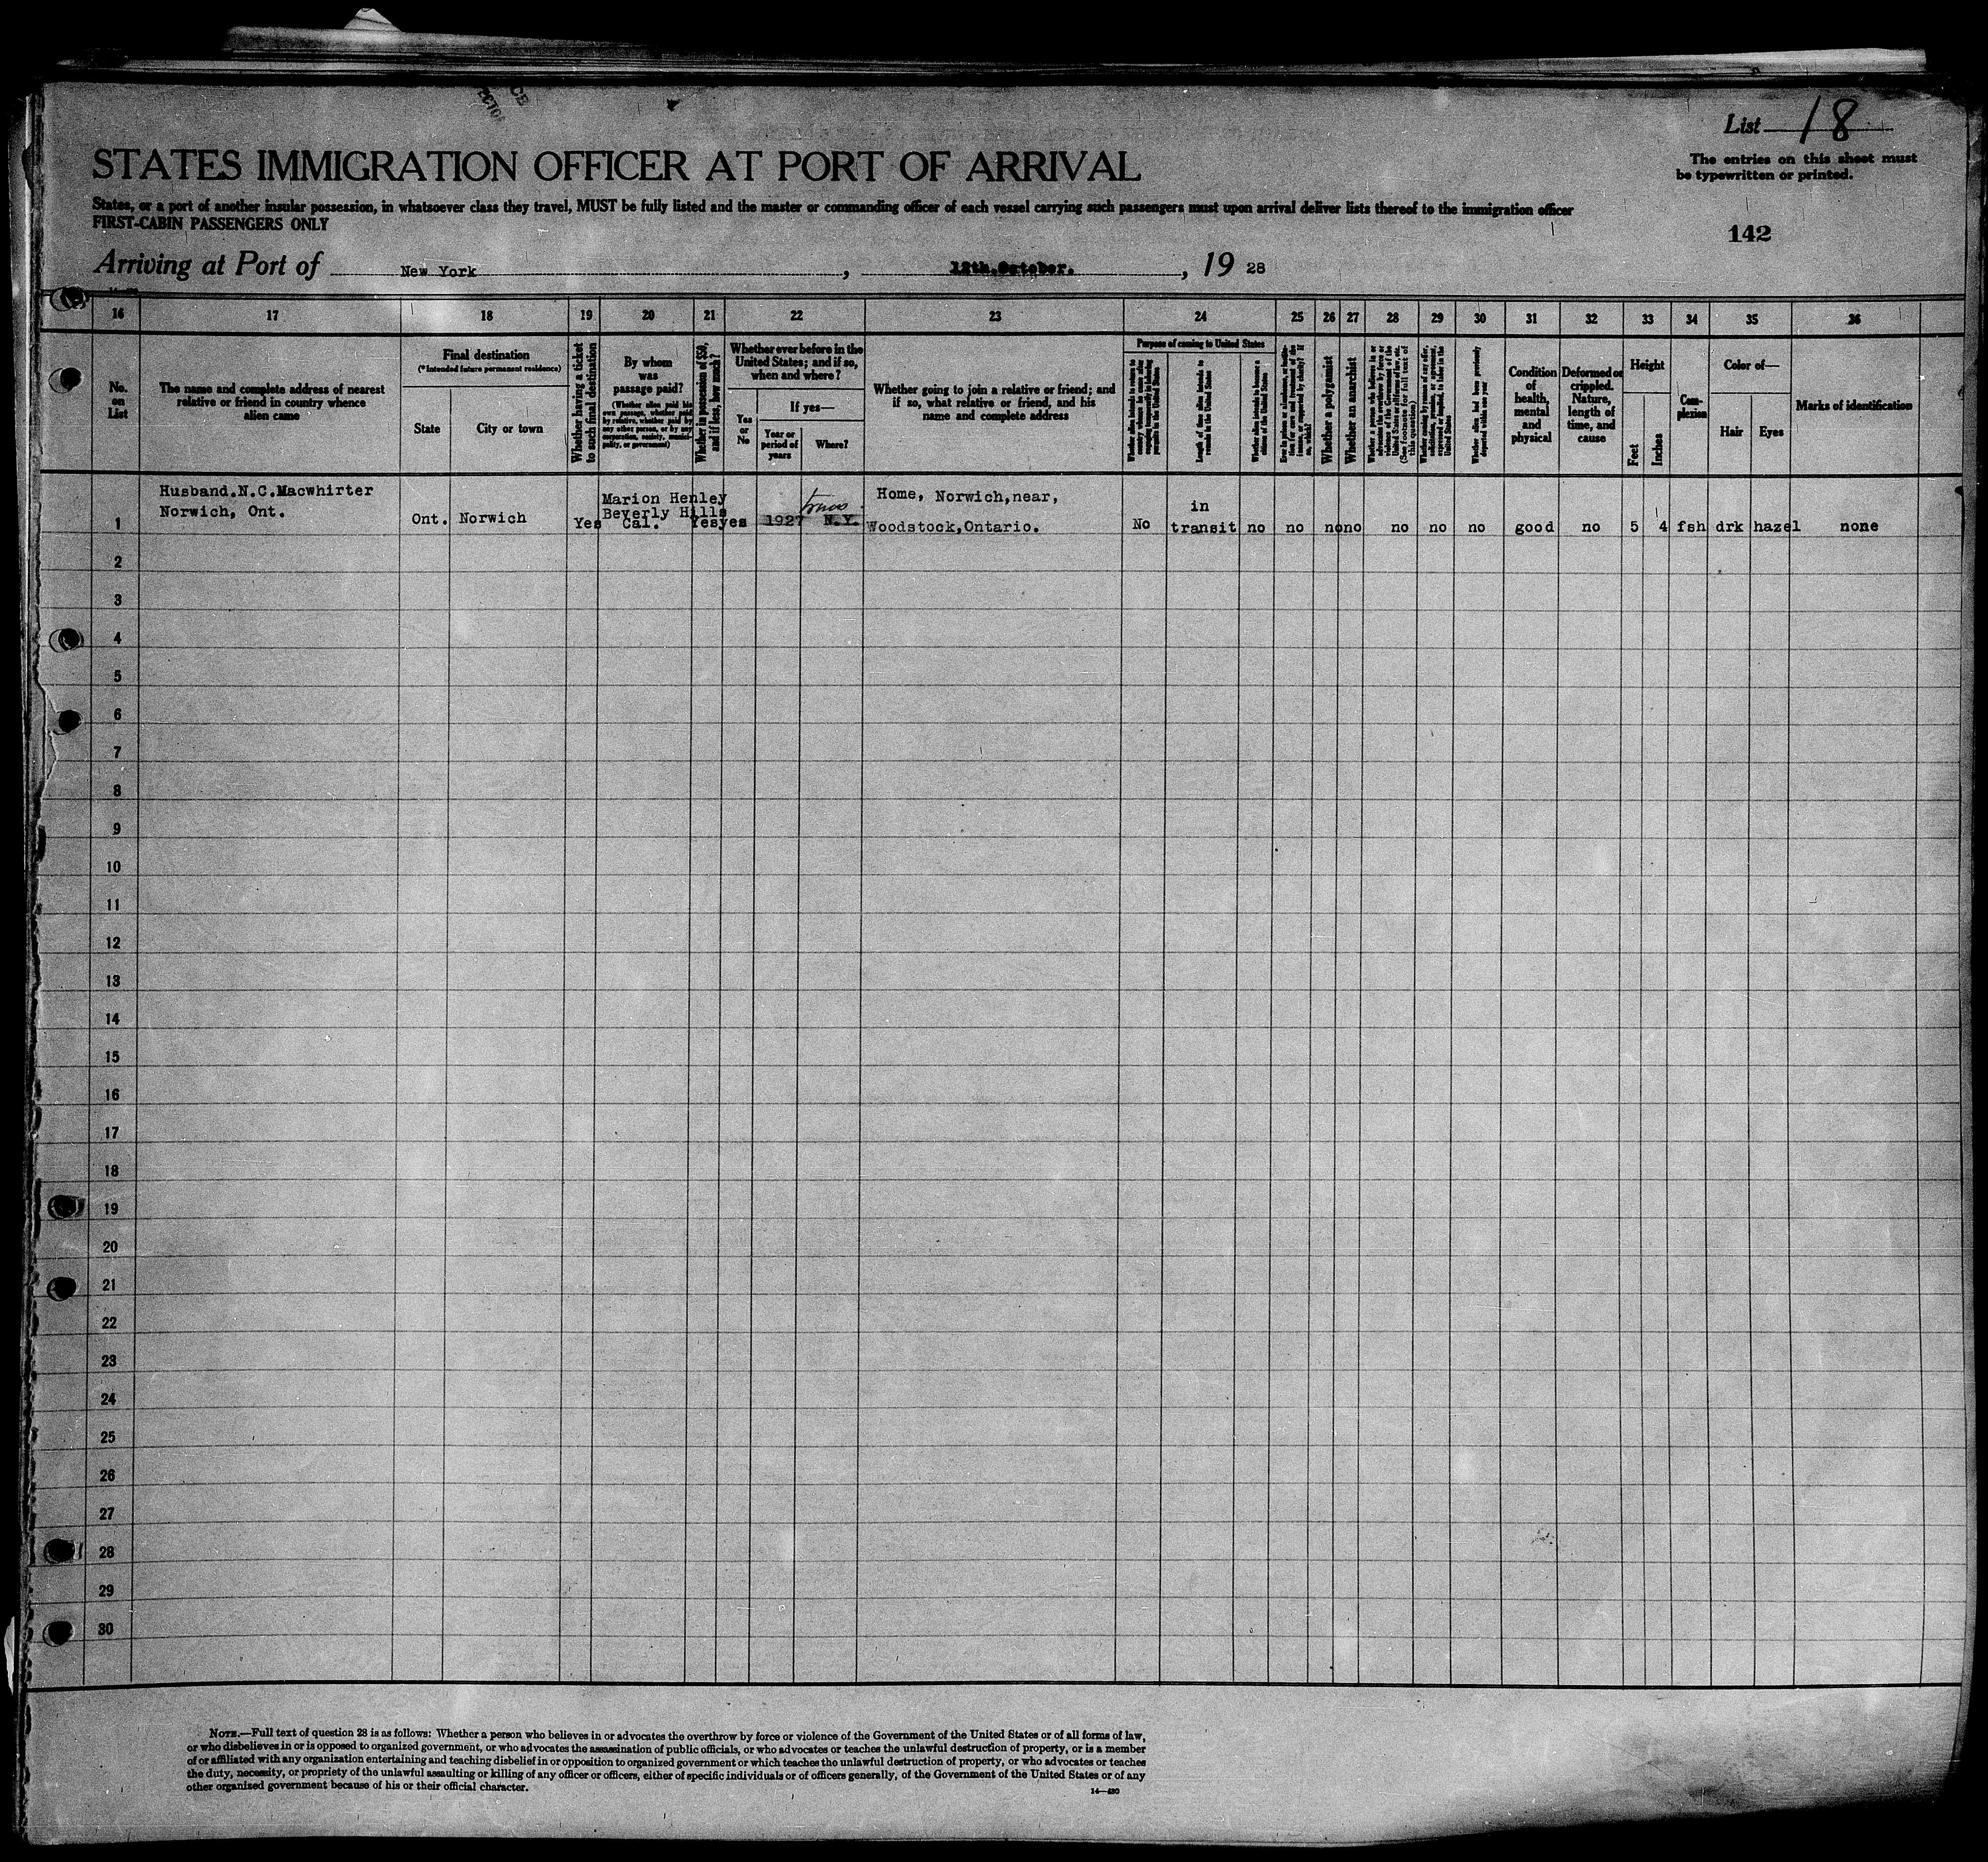 List 18
The entries on this sheet must
be typewritten or printed.
STATES IMMIGRATION OFFICER AT PORT OF ARRIVAL
States, or a port of another insular possession, in whatsoever class they travel, MUST be fully listed and the master or commanding officer of each vessel carrying such passengers must upon arrival deliver lists thereof to the immigration officer
FIRST-CABIN PASSENGERS ONLY
142
Arriving at Port of New York, 12th. October., 19 28
16 17 18 19 20 21 22 23 24 25 26 27 28 29 30 31 32 33 34 35 36
No.
on
List
The name and complete address of nearest
relative or friend in country whence
alien came
Final destination
(*Intended future permanent residence)
State
City or town
Whether having a ticket
to such final destination
By whom
was
passage paid?
(Whether alien paid his
own passage, whether paid
by relative, whether paid by
any other person, or by any
corporation, society, munici-
pality, or government)
Whether in possession of $50,
and if less, how much?
Whether ever before in the
United States; and if so,
when and where?
Yes
or
No
If yes—
Year or
period of
years
Where?
Whether going to join a relative or friend; and
if so, what relative or friend, and his
name and complete address
Purpose of coming to United States
Length of time alien intends to
remain in the United States
Whether alien intends to become a
citizen of the United States
Whether a polygamist
Whether an anarchist
(See footnote for full text of
this question)
Whether alien had been previously
deported within one year
Condition
of
health,
mental
and
physical
Deformed or
crippled.
Nature,
length of
time, and
cause
Height
Feet
Inches
Com-
plexion
Color of—
Hair
Eyes
Marks of identification
1
Husband.N.C.Macwhirter
Norwich, Ont.
Ont.
Norwich
Yes
Marion Henley
Beverly Hills
Cal.
Yes
yes
1927
N.Y.
Home, Norwich,near,
Woodstock,Ontario.
No
in
transit
no
no
no
no
no
no
no
good
no
5
4
fsh
drk
hazel
none
2
3
4
5
6
7
8
9
10
11
12
13
14
15
16
17
18
19
20
21
22
23
24
25
26
27
28
29
30
NOTE.—Full text of question 28 is as follows: Whether a person who believes in or advocates the overthrow by force or violence of the Government of the United States or of all forms of law,
or who disbelieves in or is opposed to organized government, or who advocates the assassination of public officials, or who advocates or teaches the unlawful destruction of property, or is a member
of or affiliated with any organization entertaining and teaching disbelief in or opposition to organized government or which teaches the unlawful destruction of property, or who advocates or teaches
the duty, necessity, or propriety of the unlawful assaulting or killing of any officer or officers, either of specific individuals or of officers generally, of the Government of the United States or of any
other organized government because of his or their official character.
14—430